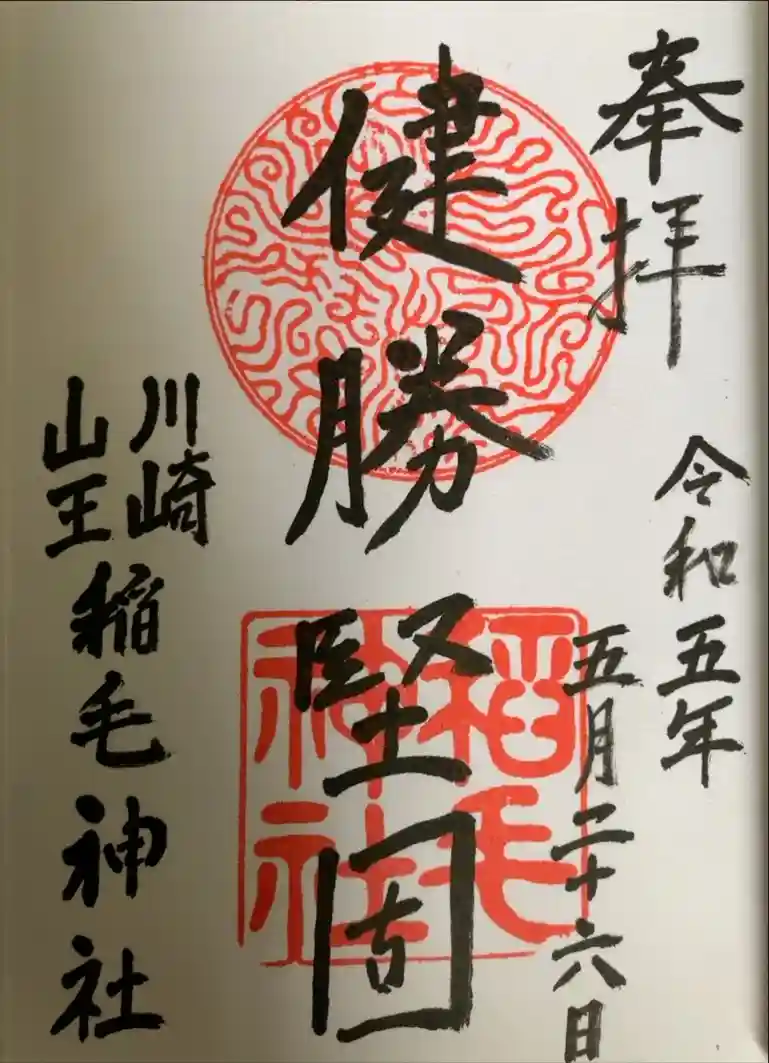 奉拝
令和五年
五月二十六日
健勝堅固
稲毛
神社
川崎
山王
稲毛神社